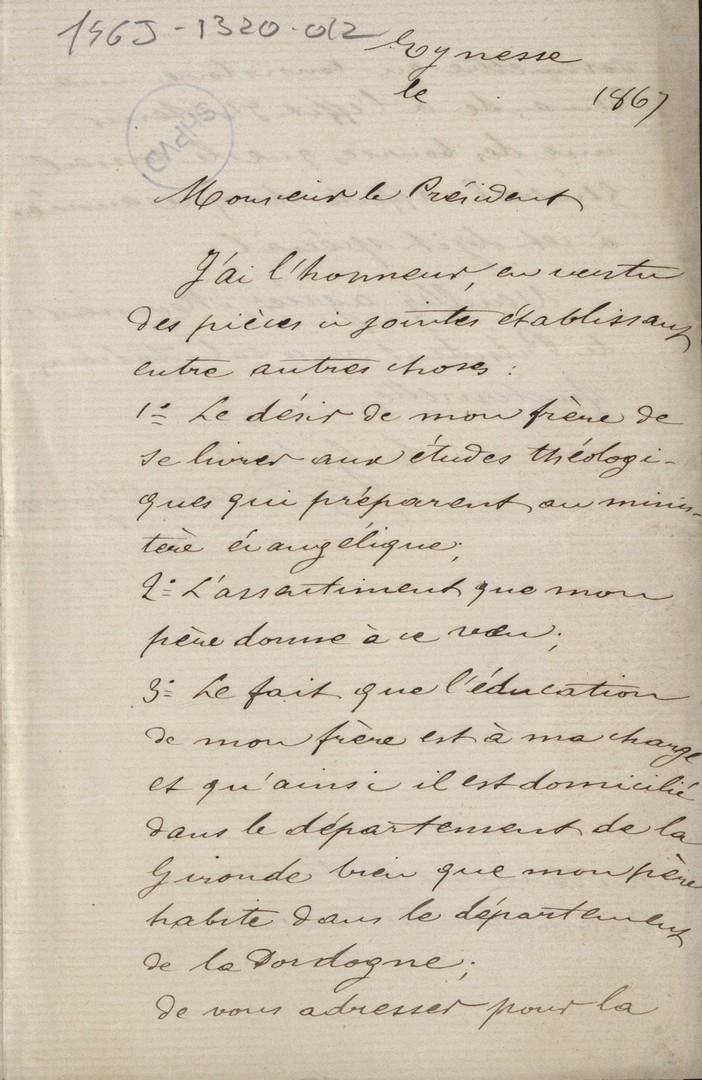 196J-1320-012
Eynesse
le 1867
Monsieur le Président
J'ai l'honneur, en vertu
des pièces ci jointes établissant
entre autres choses :
1º Le désir de mon frère de
se livrer aux études théologi-
ques qui préparent au minis-
tère évangélique;
2º L'assentiment que mon
père donne à ce vœu;
3º Le fait que l'éducation
de mon frère est à ma charge
et qu'ainsi il est domicilié
dans le département de la
Gironde bien que mon père
habite dans le département
de la Dordogne;
de vous adresser pour la